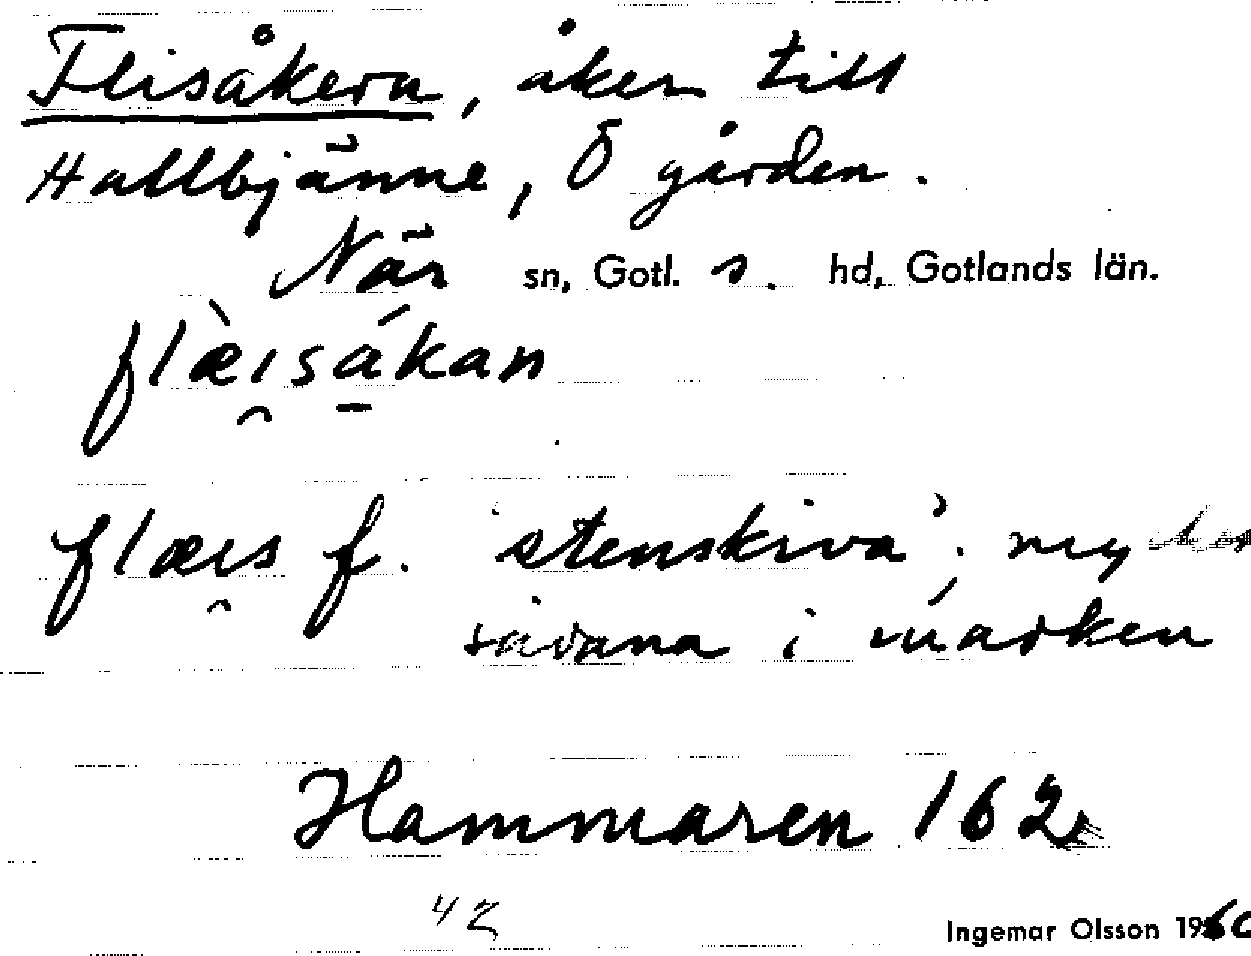 Flisåkern, åker till
Hallbjänne, Ö gården.
När sn, Gotl. s. hd, Gotlands län.
flæ̀i̯såkan
flæi̯s f. 'stenskiva'; mycket
sådana i marken
Hammaren 162
42
Ingemar Olsson 1960